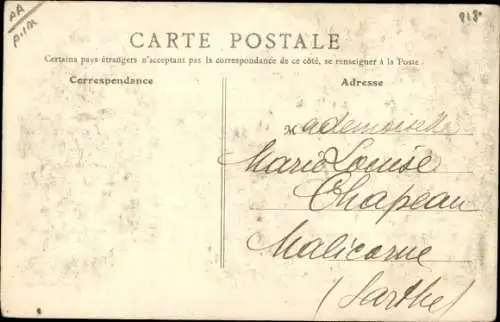 CARTE POSTALE
Certains pays étrangers n'acceptant pas la correspondance de ce côté, se renseigner à la Poste.
Correspondance
Adresse
Mademoiselle
Marie Louise
Chapeau
Malicorne
(Sarthe)